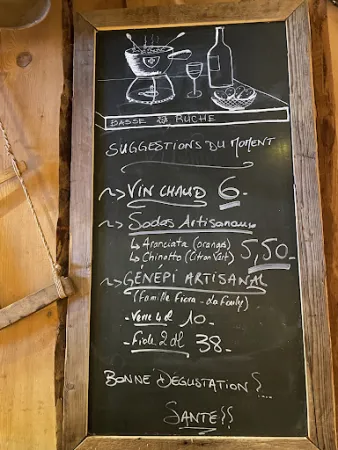 BASSE RUCHE
SUGGESTIONS DU MOMENT
~> VIN CHAUD 6.-
~> Sodas Artisanaux
↳ Aranciata (orange)
↳ Chinotto (Citron Vert) 5,50.-
~> GÉNÉPI ARTISANAL
(Famille Fiora - La Fouly)
- Verre 4 cl 10.-
- Fiole 2 dl 38.-
BONNE DÉGUSTATION
SANTÉ